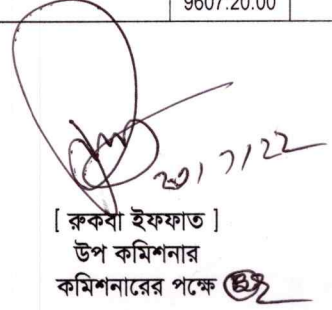 9607.20.00
20/7/22
[ রুকবা ইফফাত ]
উপ কমিশনার
কমিশনারের পক্ষে